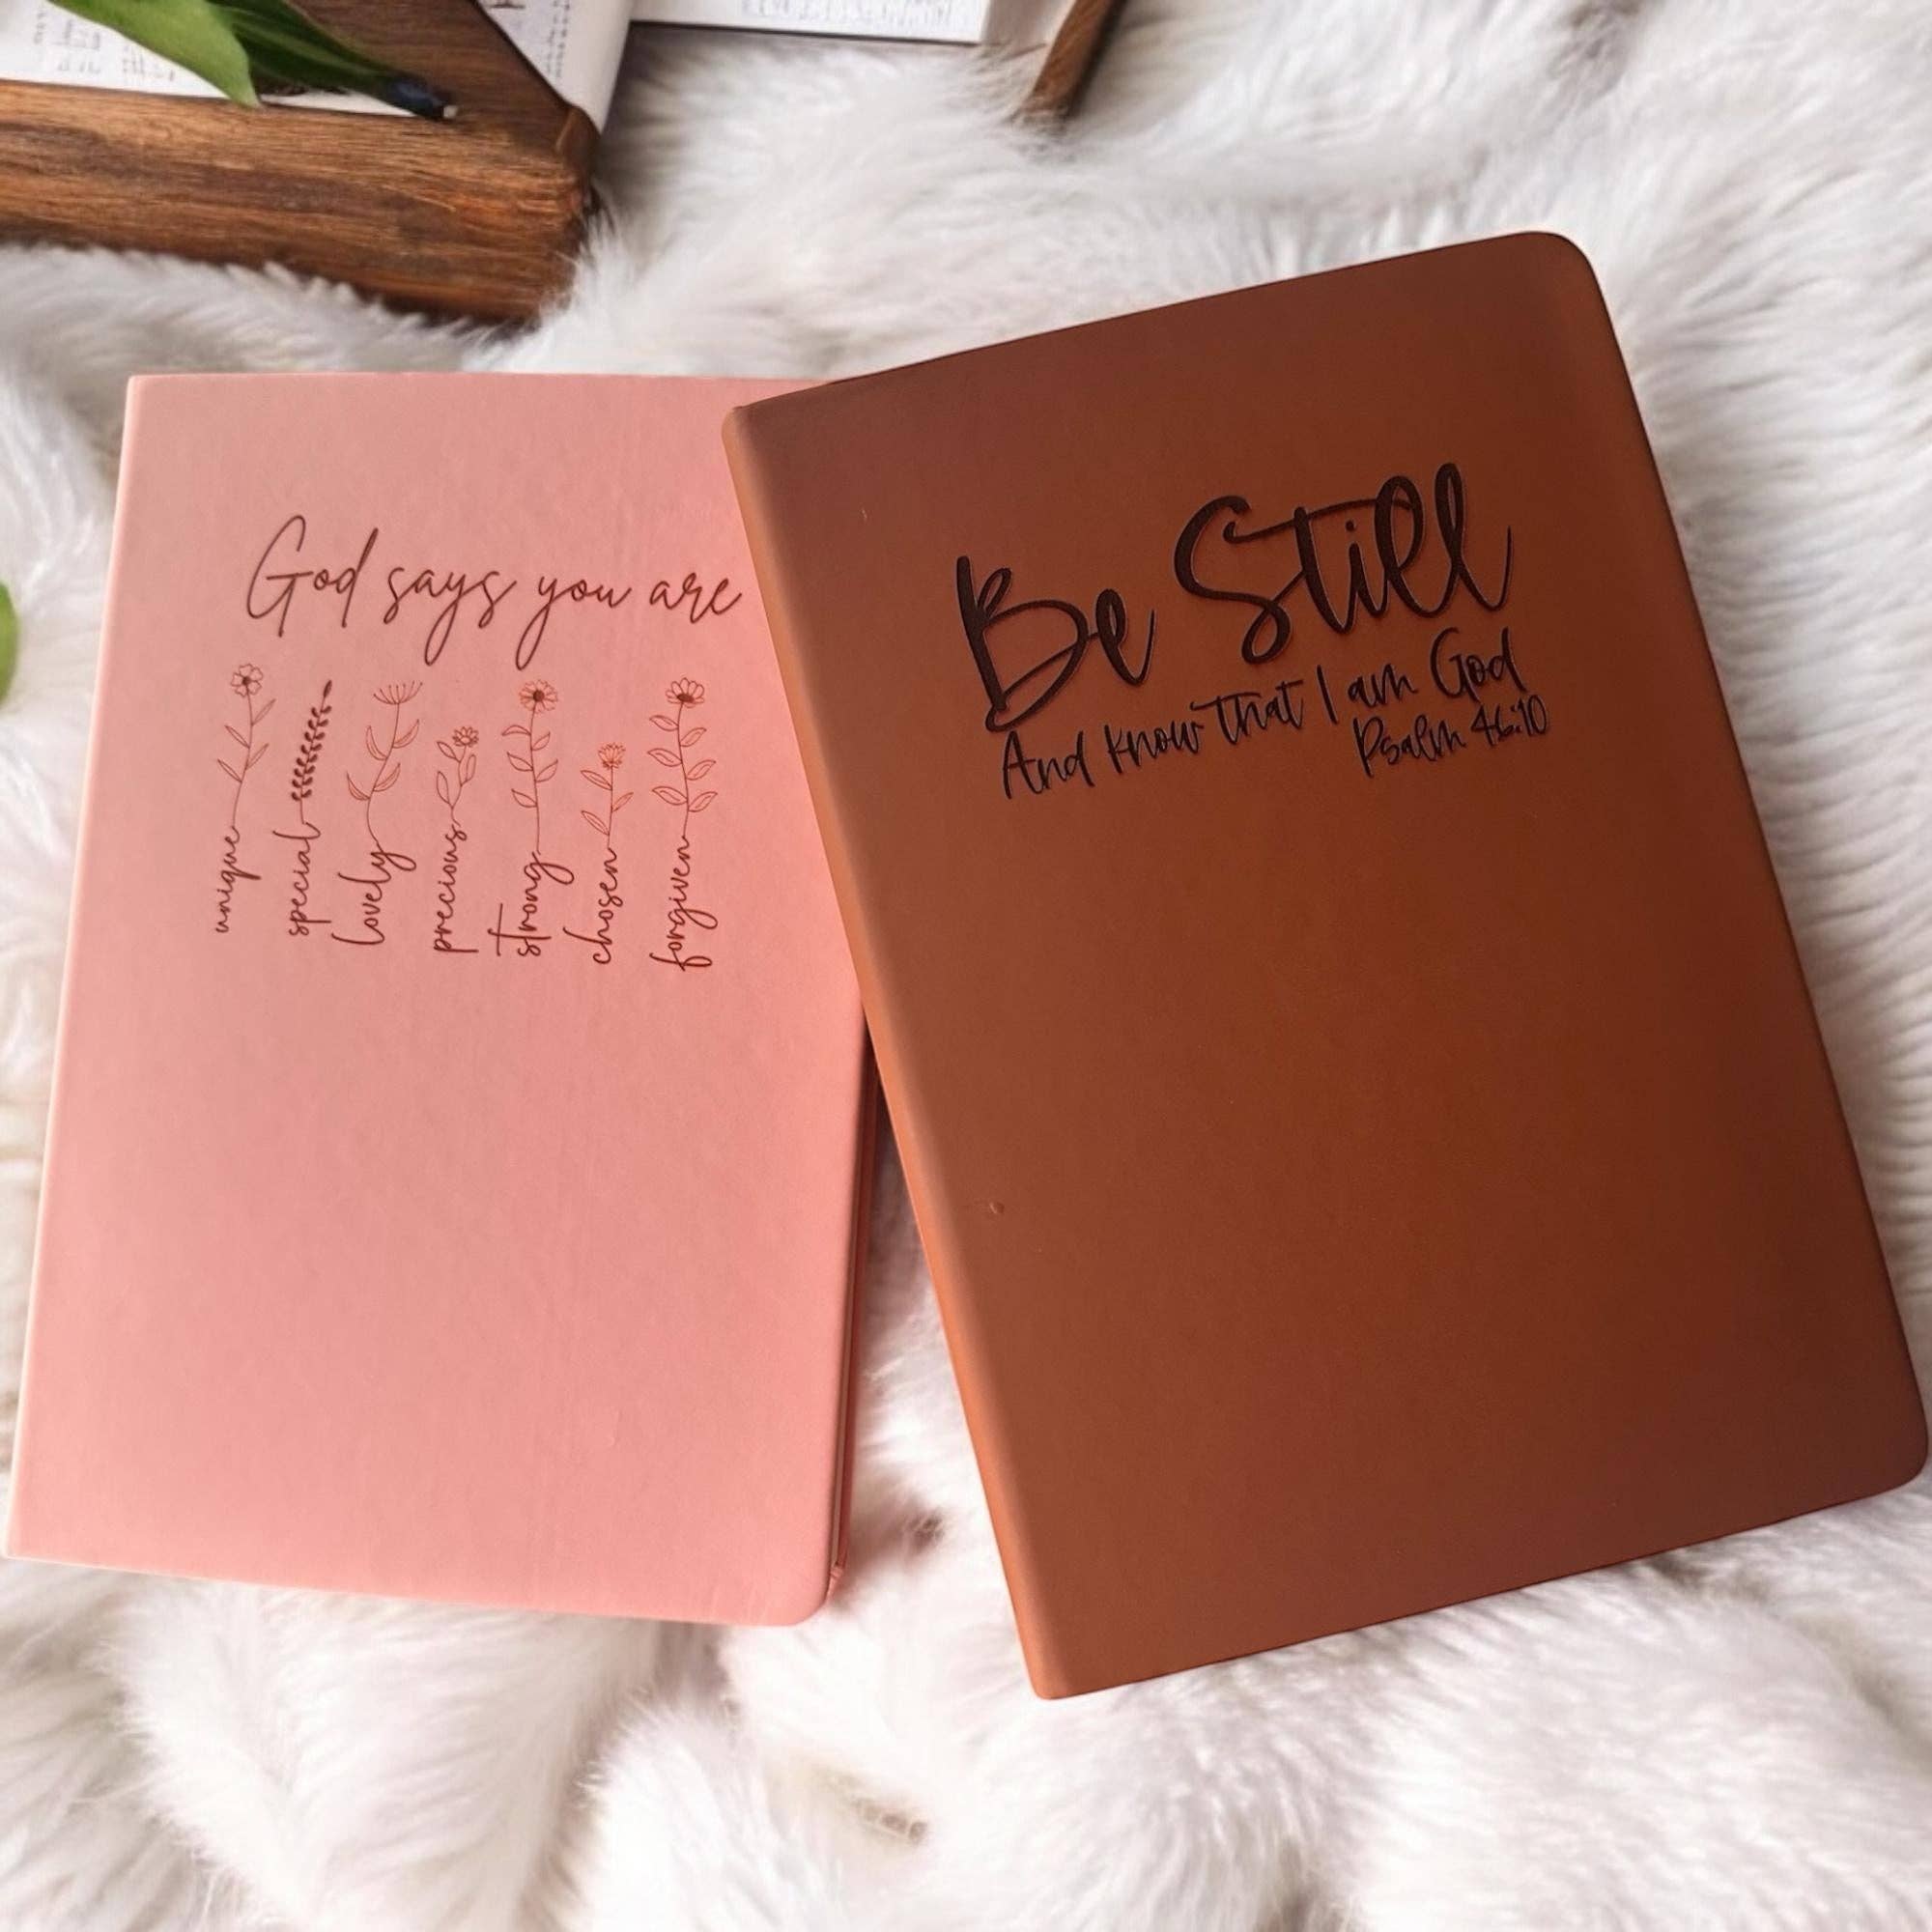 God says you are
unique
special
lovely
precious
strong
chosen
forgiven
Be Still
And know that I am God
Psalm 46:10